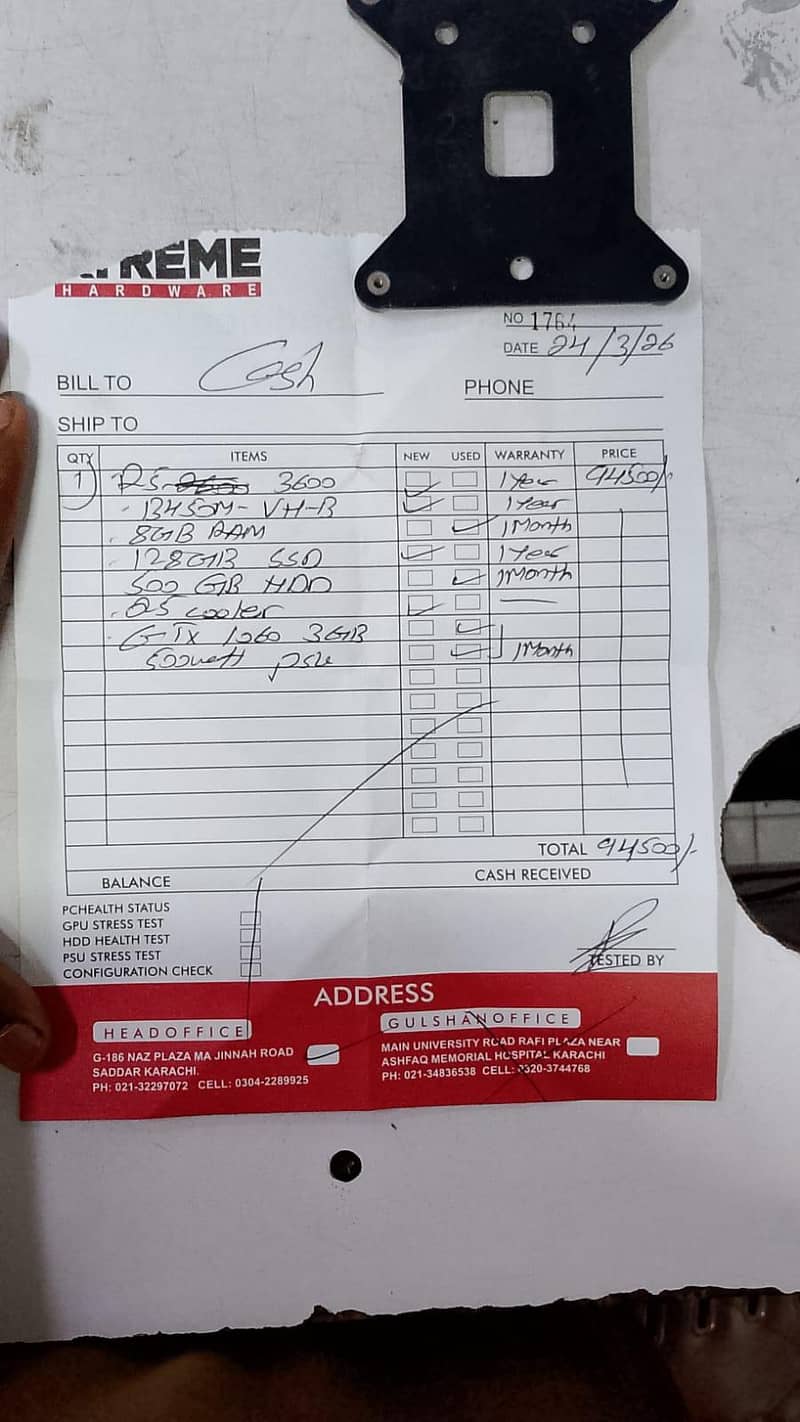 XTREME
HARDWARE
NO 1764
DATE 24/3/26
BILL TO Cash
PHONE
SHIP TO
QTY ITEMS NEW USED WARRANTY PRICE
1 R5 3600 1 Year 94500/-
B450M-VH-B 1 Year
8GB RAM 1Month
128GB SSD 1 Year
500 GB HDD 1Month
cooler
GTX 1060 3GB
500watt psu 1Month
TOTAL 94500/-
BALANCE CASH RECEIVED
PCHEALTH STATUS
GPU STRESS TEST
HDD HEALTH TEST
PSU STRESS TEST
CONFIGURATION CHECK
TESTED BY
ADDRESS
HEADOFFICE
G-186 NAZ PLAZA MA JINNAH ROAD
SADDAR KARACHI.
PH: 021-32297072 CELL: 0304-2289925
GULSHANOFFICE
MAIN UNIVERSITY ROAD RAFI PLAZA NEAR
ASHFAQ MEMORIAL HOSPITAL KARACHI
PH: 021-34836538 CELL: 0320-3744768